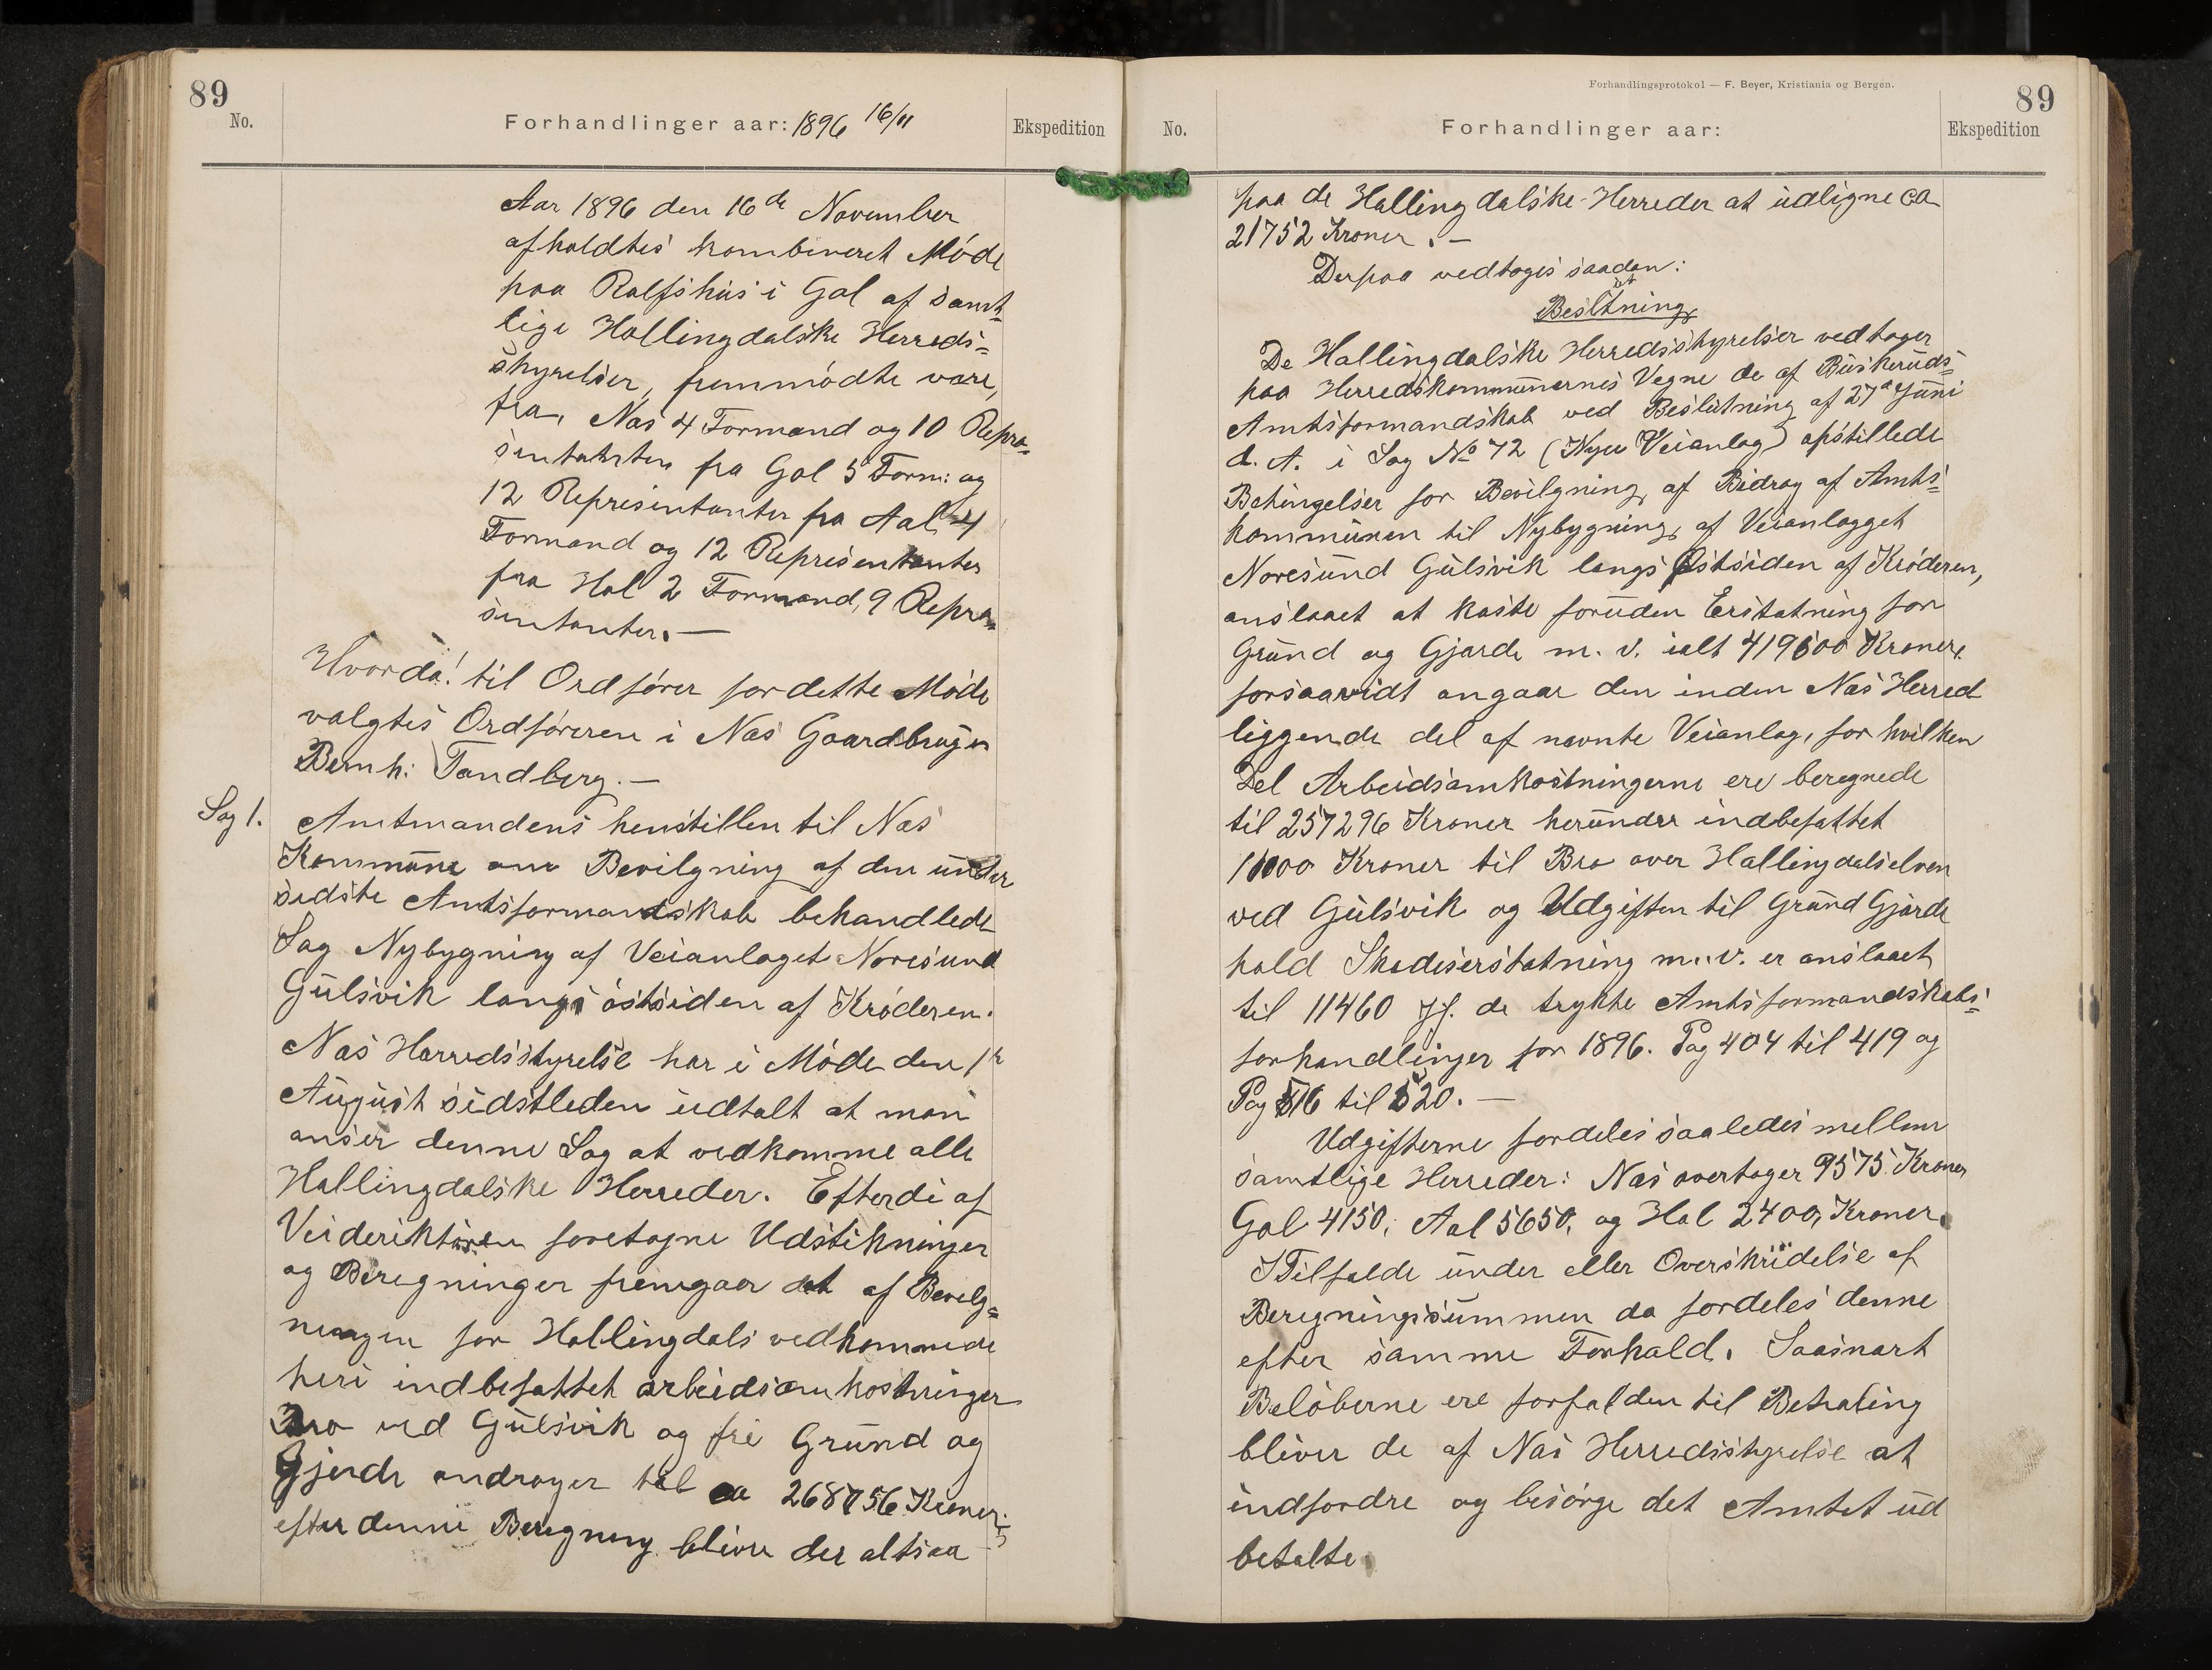 89
No.
Forhandlinger aar: 1896 16/11
Ekspedition
Aar 1896 den 16de November
afholdtes kombineret Møde
paa Rolfshus i Gol af samt-
lige Hallingdalske Herreds-
styrelser, fremmødte vare,
fra, Nas 4 Formænd og 10 Repræ-
sentanter fra Gol 5 Form: og
12 Representanter fra Aal 4
Formænd og 12 Representanter
fra Hol 2 Formænd, 9 Repræ-
sentanter. —
Hvorda! til Ordfører for dette Møde
valgtes Ordføreren i Nas Gaardbruger
Bernh: Tandberg. —
Sag 1.
Amtmandens henstillen til Nas
Kommune om Bevilgning af den under
sidste Amtsformandskab behandlede
Sag Nybygning af Veianlaget Noresund
Gulsvik langs østsiden af Krøderen.
Nas Herredsstyrelse har i Møde den 1ste
August sidstleden udtalt at man
anser denne Sag at vedkomme alle
Hallingdalske Herreder. Efterdi af
Veiderektøren foretagne Udstikninger
og Beregninger fremgaar det af Bevilg-
ningen for Hallingdals vedkommede
heri indbefattet arbeidsomkostninger
Bro ved Gulsvik og fri Grund og
Gjerde andrager til ca 268756 Kroner;
efter denne Beregning bliver der altsaa
Forhandlingsprotokol — F. Beyer, Kristiania og Bergen.
89
No.
Forhandlinger aar:
Ekspedition
paa de Hallingdalske Herreder at udligne ca
21752 Kroner. —
Derpaa vedtoges saadan:
Beslutning
De Hallingdalske Herredsstyrelser vedtager
paa Herredskommunernes Vegne de af Buskeruds-
Amtsformandskab ved Beslutning af 27de Juni
d. A. i Sag No 72 (Nye Veianlæg) opstillede
Betingelser for Bevilgning af Bidrag af Amts-
kommunen til Nybygning af Veianlægget
Noresund Gulsvik langs Østsiden af Krøderen,
anslaaet at koste foruden Erstatning for
Grund og Gjærde m. v. ialt 419600 Kroner.
forsaavidt angaar den inden Nas Herred
liggende del af nævnte Veianlæg, for hvilken
Del Arbeidsomkostningerne ere beregnede
til 257296 Kroner herunder indbefattet
11000 Kroner til Bro over Hallingdalselven
ved Gulsvik og Udgiften til Grund Gjærde
hold Skadeserstatning m. v. er anslaaet
til 11460 jf. de trykte Amtsformandskabs-
forhandlinger for 1896. Pag 404 til 419 og
Pag 516 til 520. —
Udgifterne fordeles saaledes mellem
samtlige Herreder: Nas overtager 9575 Kroner
Gol 4150, Aal 5650, og Hol 2400, Kroner.
I Tilfælde under eller Overskridelse af
Beregningssummen da fordeles denne
efter samme Forhold. Saasnart
Beløberne ere forfalden til Betaling
bliver de af Nas Herredsstyrelse at
indfordre og besørge det Amtet ud
betalte.